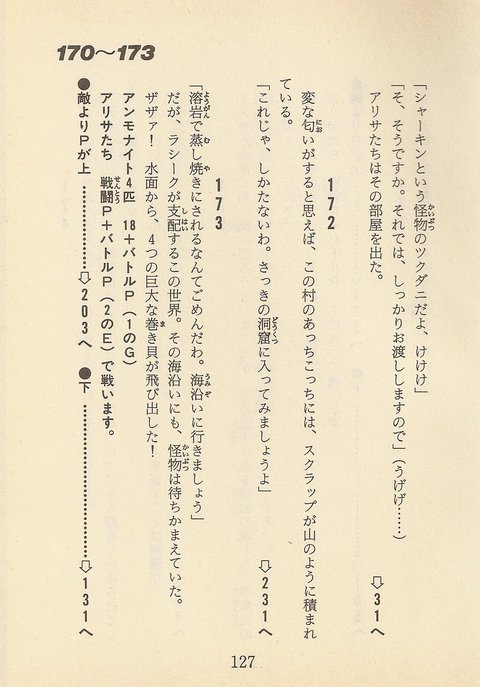 170〜173
「シャーキンという怪物のツクダニだよ、けけけ」
「そ、そうですか。それでは、しっかりお渡ししますので」(うげげ……)
アリサたちはその部屋を出た。
⇨31へ
172
変な匂いがすると思えば、この村のあっちこっちには、スクラップが山のように積まれ
ている。
「これじゃ、しかたないわ。さっきの洞窟に入ってみましょうよ」
⇨231へ
173
「溶岩で蒸し焼きにされるなんてごめんだわ。海沿いに行きましょう」
だが、ラシークが支配するこの世界。その海沿いにも、怪物は待ちかまえていた。
ザザァ! 水面から、4つの巨大な巻き貝が飛び出した!
アンモナイト4匹 18+バトルP(1のG)
アリサたち 戦闘P+バトルP(2のE)で戦います。
●敵よりPが上 ……………⇨203へ ●下 ……………………⇨131へ
127